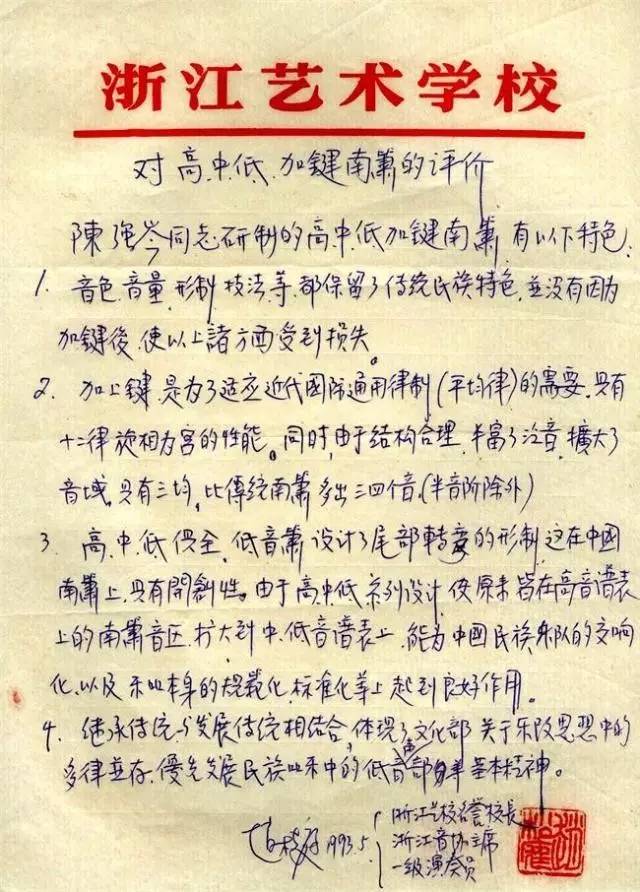 浙江艺术学校
对高.中.低.加鍵南簫的评价
陳强岑同志研制的高.中.低加鍵南簫,有以下特色:
1. 音色.音量.形制.技法等.都保留了传统民族特色,並没有因为
加鍵後,使以上諸方面受到损失。
2. 加上鍵,是为了适应近代國际通用律制(平均律)的需要.具有
十二律旋相为宫的性能。同时,由于结构合理,丰富了泛音,擴大了
音域,具有三均,比傳統南簫多出三四倍.(半音阶除外)
3. 高.中.低俱全,低音簫设计了尾部轉变的形制,这在中國
南簫上,具有開創性。由于高.中.低系列设计,使原来皆在高音谱表
上的南簫音区,扩大到中.低音谱表上,能为中國民族乐队的交响
化,以及乐器本身的规範化,标准化等上起到良好作用。
4. 继承传统与发展传统相结合,体现了文化部关于乐改思想中的
多律並存.優先发展民族吹乐中的低音声部等基本精神。
赵松庭1993.5.
浙江艺校名誉校長
浙江音协主席
一级演奏员